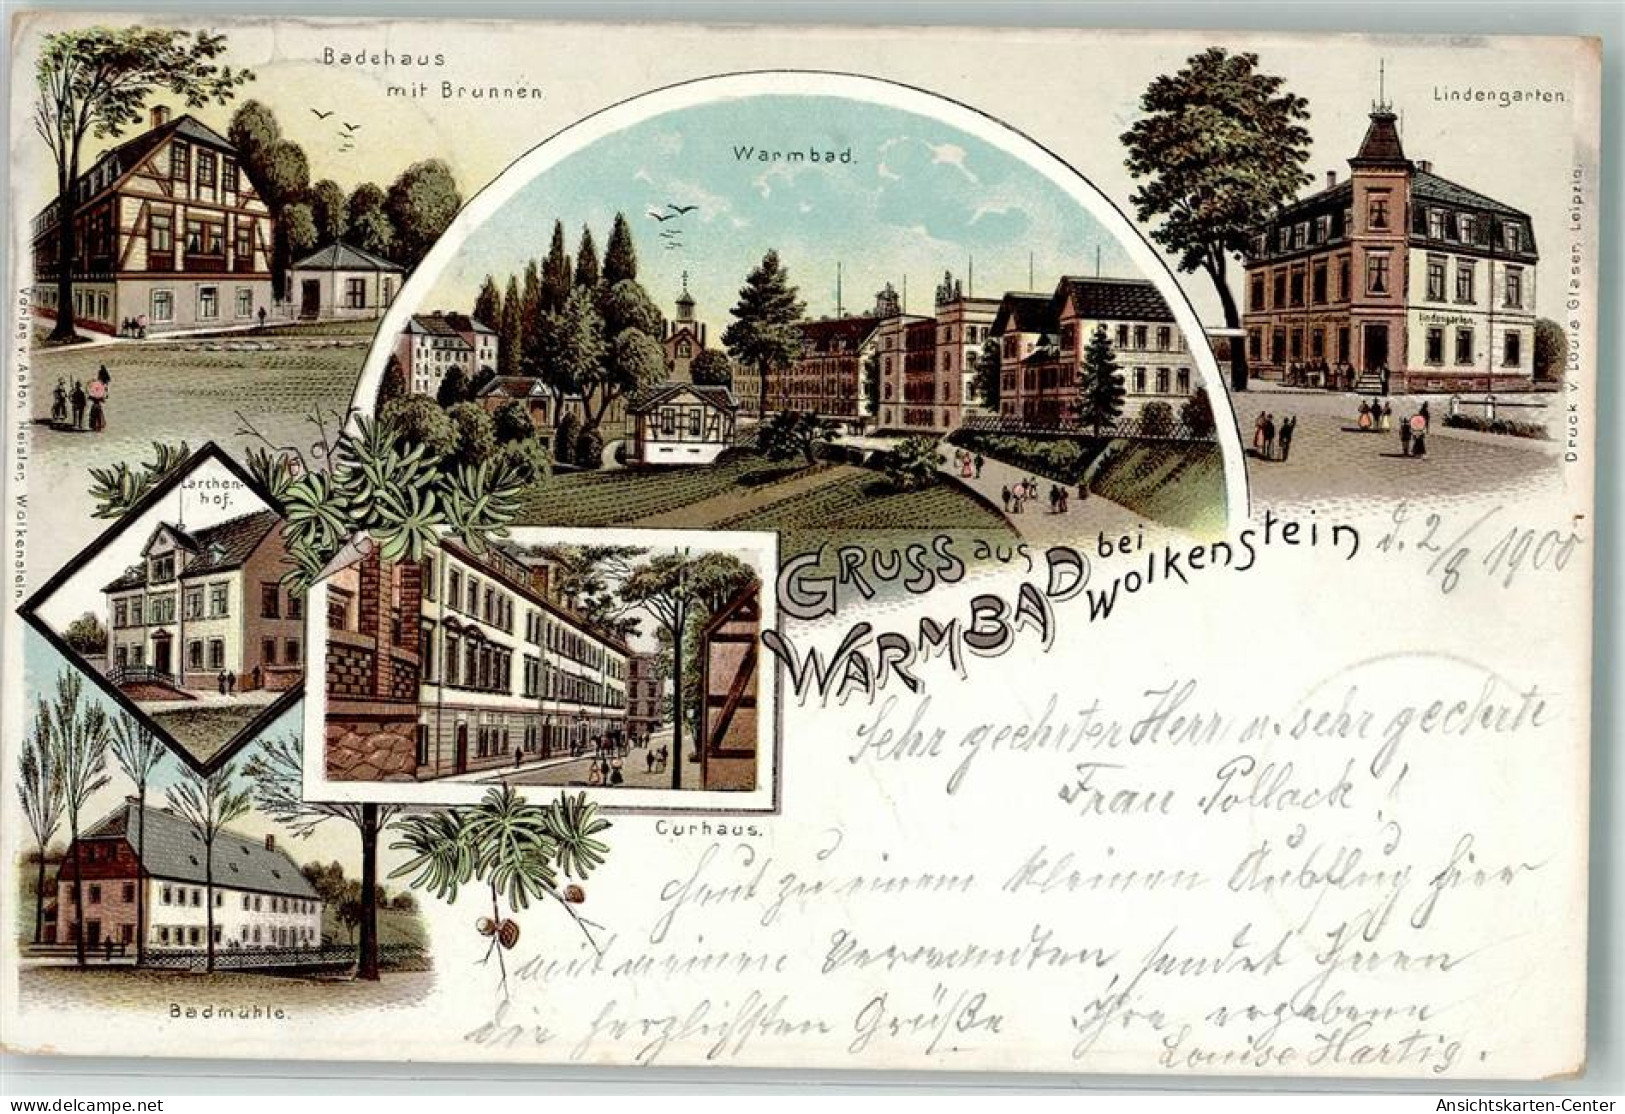 Badehaus
mit Brunnen.
Warmbad.
Lindengarten.
Lindengarten.
Lärchen-
hof.
Gruss aus
Warmbad bei
Wolkenstein
d. 2/8 1900
Sehr geehrter Herr u. sehr geehrte
Frau Pollack!
Heut zu einem kleinen Ausflug hier
mit meinen Verwandten, sendet Ihnen
die herzlichsten Grüße Ihre ergebene
Louise Hartig.
Curhaus.
Badmühle.
Verlag v. Anton Heisler, Wolkenstein.
Druck v. Louis Glaser, Leipzig.
delcampe.net
Ansichtskarten-Center